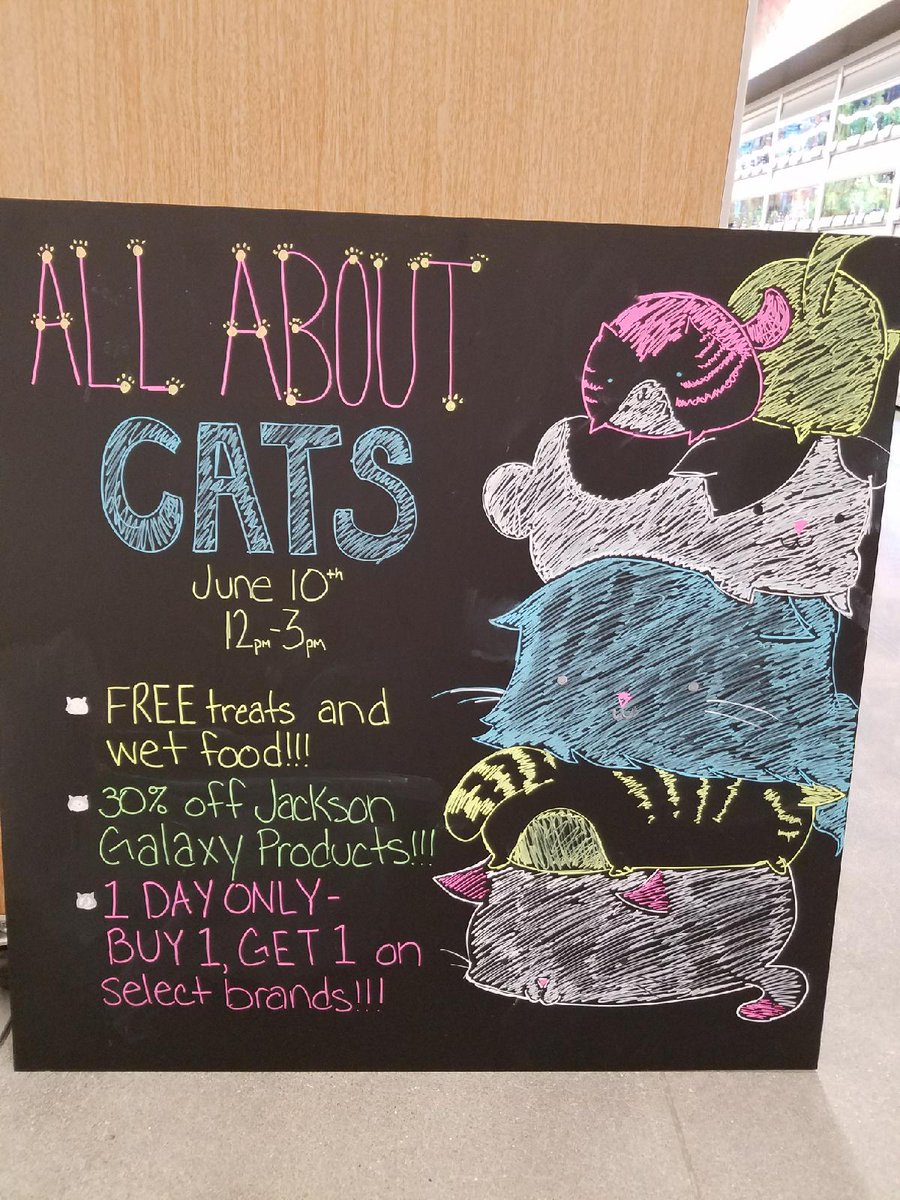 ALL ABOUT
CATS
June 10th
12pm-3pm
FREE treats and
wet food!!!
30% off Jackson
Galaxy Products!!!
1 DAY ONLY-
BUY 1, GET 1 on
select brands!!!